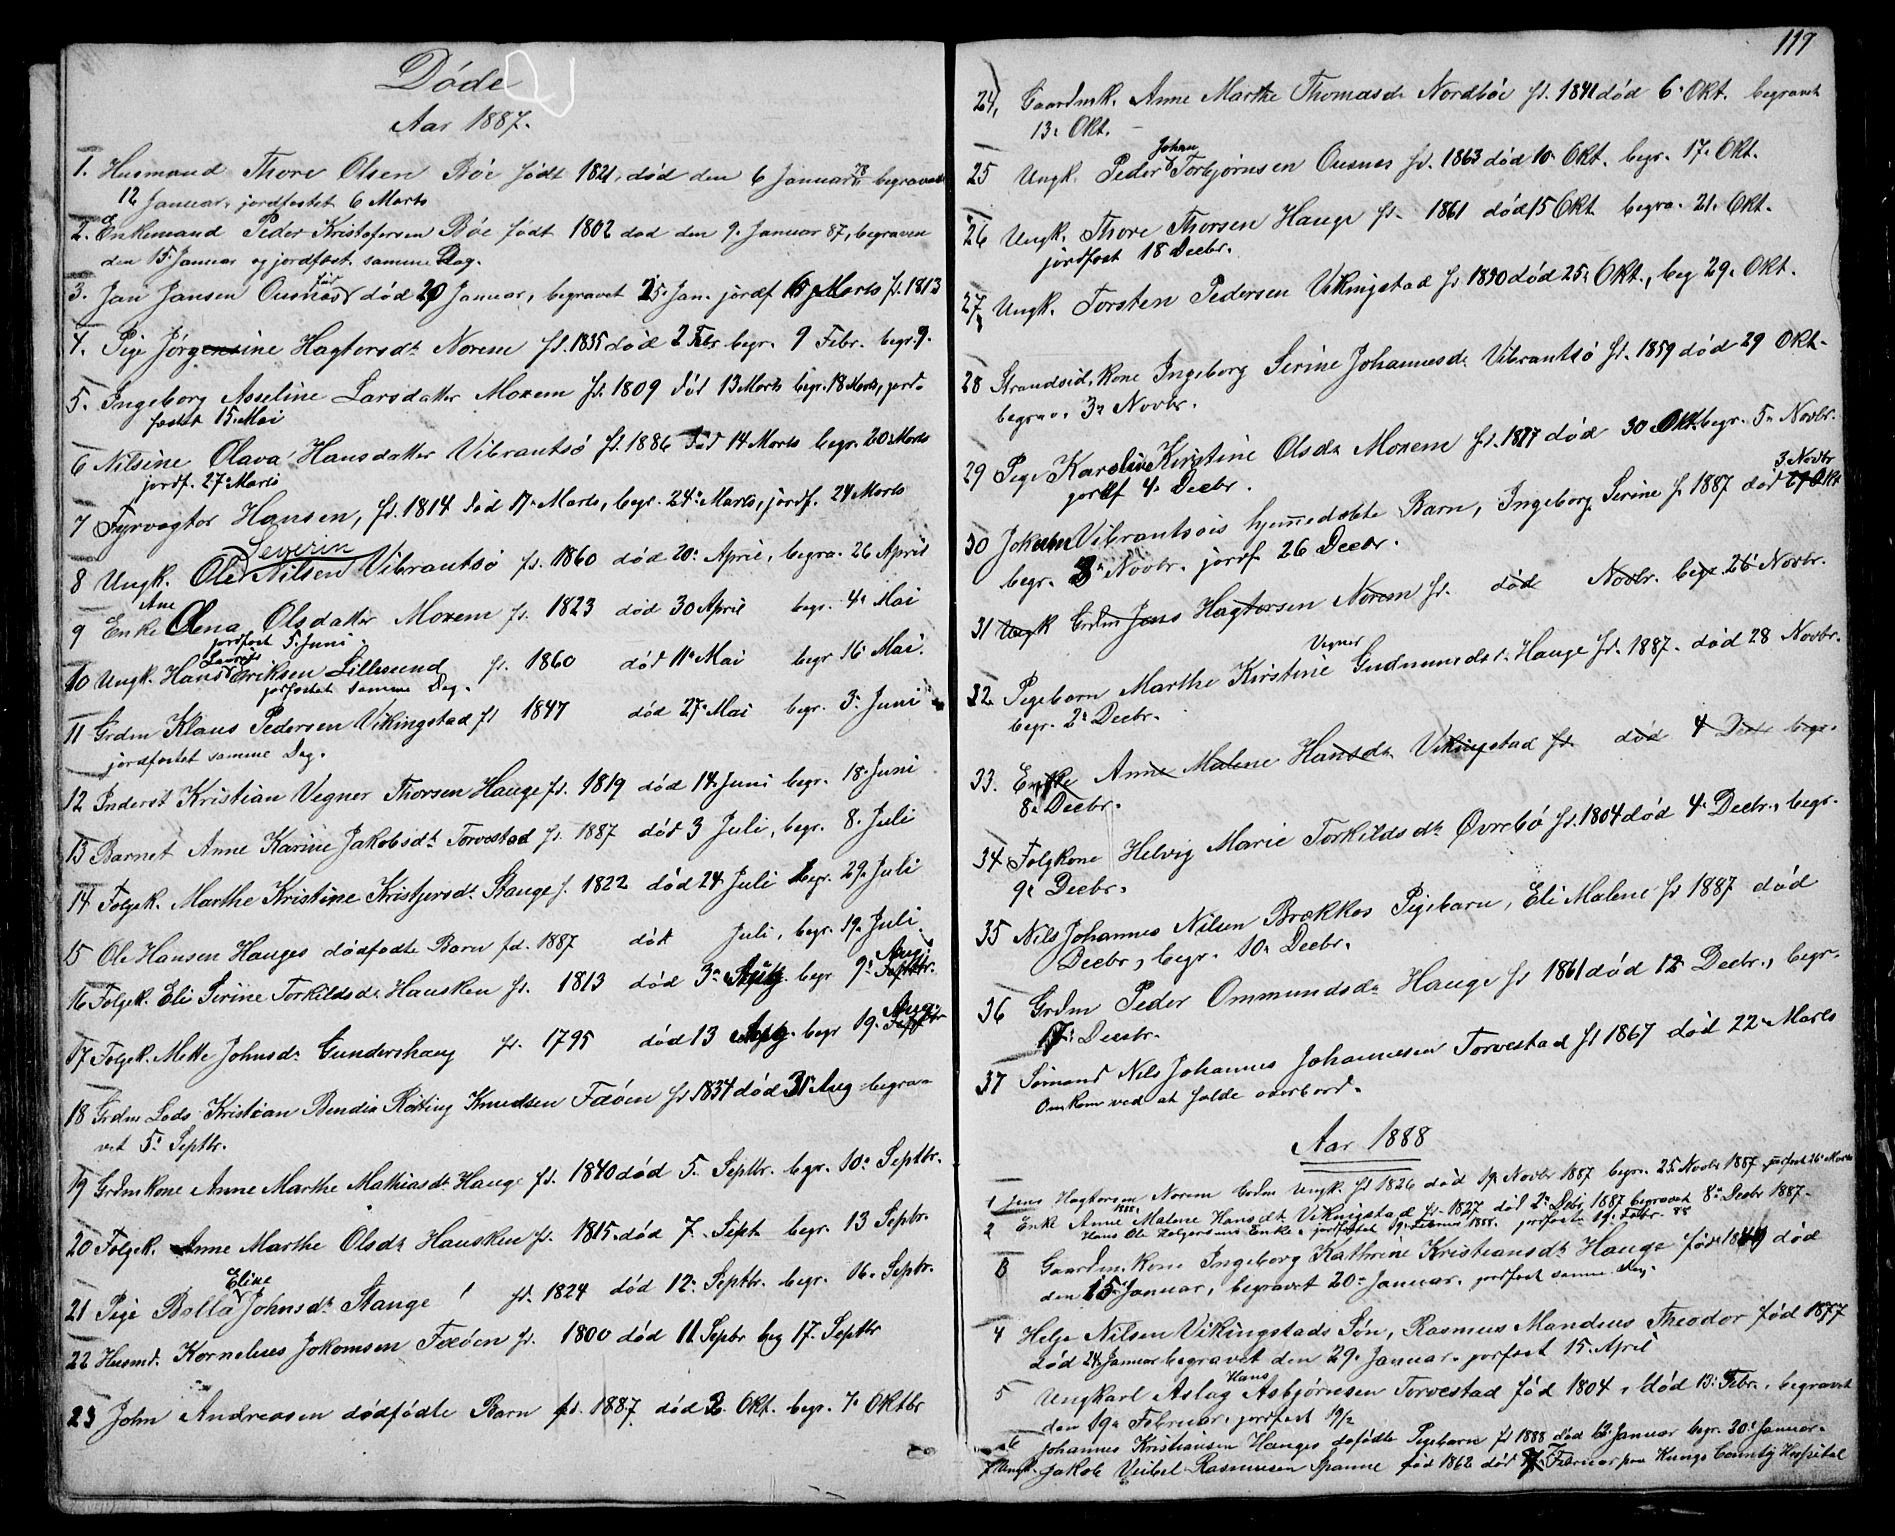 Døde
Aar 1887.
1. Husmand Thore Olsen Bøe født 1821, død den 6 Januar begravet
12 Januar, jordfæstet 6 Marts
2. Enkemand Peder Kristofersen Bøe født 1802 død den 9. Januar 87, begraven
den 15. Januar og jordfæst. samme Dag.
3. Jan Jansen Ousnes død 20 Januar, begravet 25. Jan. jordf 6 Marts fd. 1813
4. Pige Jørgensine Hagtorsdt. Norem fd. 1835 død 2 Febr begr. 9 Febr. begr. 9.
5. Ingeborg Asseline Larsdatter Moxem fd. 1809 død 13 Marts begr. 18 Marts, jord-
fæstet 15. Mai
6 Nilsine Olava Hansdatter Vibrantsø fd. 1886 død 14 Marts begr. 20 Marts
jordf. 27 Marts
7 Fyrvogter Hansen, fd. 1814 død 17. Marts, begr. 24. Marts, jordf. 24 Marts
Severin
8 Ungk. Ole Nilsen Vibrantsø fd. 1860 død 20. April, begra. 26 April
Ane
9 Enke Olena Olsdatter Moxem fd. 1823 død 30 April begr. 4. Mai
jordfæst 5. Juni
Laurits
10 Ungk. Hans Eriksen Lillesund fd. 1860 død 11. Mai begr 16. Mai.
jordfæstet samme Dag.
11 Grdm Klaus Pedersen Vikingstad fd 1847 død 27. Mai begr. 3. Juni
jordfæstet samme Dag.
12 Inderst Kristian Vegner Thorsen Hauge fd. 1819 død 14. Juni begr. 18. Juni
13 Barnet Anne Karine Jakobsdt. Torvestad fd. 1887 død 3 Juli, begr. 8. Juli
14 Folgek. Marthe Kristine Kristfersdt. Stange f. 1822 død 24. Juli begr. 29. Juli
15 Ole Hansen Hauges dødfødte Barn fd. 1887 død Juli, begr. 19. Juli.
Aug.
16 Folgek. Eli Serine Torkildsdt. Hausken fd. 1813 død 3. Aug. begr 9. Septbr.
Aug.
17 Folgek. Mette Johnsdt. Gundershaug fd. 1795 død 13 Aug. begr 19. Septbr
18 Grdm Lods Kristian Bendix Røting Knudsen Fæøen fd. 1834 død 31. Aug begra-
vet 5. Septbr.
19 Grdmkone Anne Marthe Mathiasdt. Hauge fd. 1840 død 5. Septbr. begr. 10. Septbr.
20 Folgek. Anne Marthe Olsdt. Hausken fd. 1815. død 7. Sept. begr. 13 Septbr.
Eline
21 Pige Bolla Johnsdt. Stange fd. 1824 død 12. Septbr. begr. 16. Septbr.
22 Husmd. Kornelius Jokomsen Fæøen fd. 1800 død 11 Sepbr beg 17. Septbr
23 John Andreasen dødfødte Barn fd. 1887. død 2. Okt. begr. 7. Oktbr
117
24, Gaardmk. Anne Marthe Thomasdt. Nordbøe fd. 1841 død 6. Okt. begravet
13. Okt.
Johan
25 Ungk. Peder Torbjørnsen Ousnes fd. 1863 død 10. Okt. begr. 17. Okt.
26 Ungk. Thore Thorsen Hauge fd. 1861 død 15 Okt. begra. 21. Okt.
jordfæst 18 Decbr.
27, Ungk. Torsten Pedersen Vikingstad fd 1850 død 25. Okt., beg 29. Okt.
28 Strandsid. kone Ingeborg Serine Johannesdt. Vibrantsø fd. 1859 død 29 Okt.
begrav. 3. Novbr.
29 Pige Karoline Kirstine Olsdt. Moxem fd. 1877 død 30 Okt. begr. 5. Novbr.
jordf 4. Decbr.
3 Novbr
30 Jokum Vibrantsøis hjemmedøbte Barn, Ingeborg Serine f. 1887 død Okt
begr. 8. Novbr. jordf 26 Decbr.
31 Ungk Grdm Jens Hagtorsen Norem fd. død Novbr. begr 26 Novbr.
Vegner
32 Pigebarn Marthe Kirstine Gudmundsdt. Hauge fd. 1887. død 28 Novbr.
begr. 2. Decbr.
33. Enke Anne Malene Hansdt. Vikingstad fd. død 4 Decbr begr.
8. Decbr.
34 Folgkone Helvig Marie Torkildsdt. Øvrebø fd. 1804 død 4. Decbr., begr.
9. Decbr.
35 Nils Johannes Nilsen Brækkes Pigebarn, Eli Malene fd 1887 død
Decbr, begr. 10. Decbr.
36 Grdm Peder Ommundsdt. Hauge fd 1861 død 12. Decbr., begr.
17. Decbr.
37 Sømand Nils Johannes Johannesen Torvestad fd 1867 død 22. Marts
Omkom ved at falde overbord.
Aar 1888
1 Jens Hagtorsen Norem Grdm Ungk. fd 1826 død 19. Novbr 1887 begr. 25 Novbr 1887 jordfæst 26. Marts
1888.
2 Enke Anne Malene Hansdt. Vikingstad fd. 1827 død 2. Decbr 1887 begravet 8. Decbr 1887.
Hans Ole Holgersens Enke. jordfæstet 19. Februar 1888. jordfæstet 19. Febr. 88
3 Gaardm. kone Ingeborg Kathrine Kristiansdt. Hauge født 1849 død
den 15. Januar, begravet 20. Januar. jordfæst samme Dag.
4 Helge Nilsen Vikingstads Søn, Rasmus Mandius Theodor fød 1877
død 24. Januar begravet den 29. Januar. jorfæst 15. April
Hans
5 Ungkarl Aslag Asbjørnsen Torvestad fød 1804, død 13. Febr., begravet
den 19. Februar. jordfæst 19/2
6 Johannes Kristiansen Hauges døfødte Pigebarn fd 1888 død 12 Januar begr. 20. Januar.
7 Ungk. Jakob Rasmussen Spanne fød 1862 død Februar paa Kings County Hospital